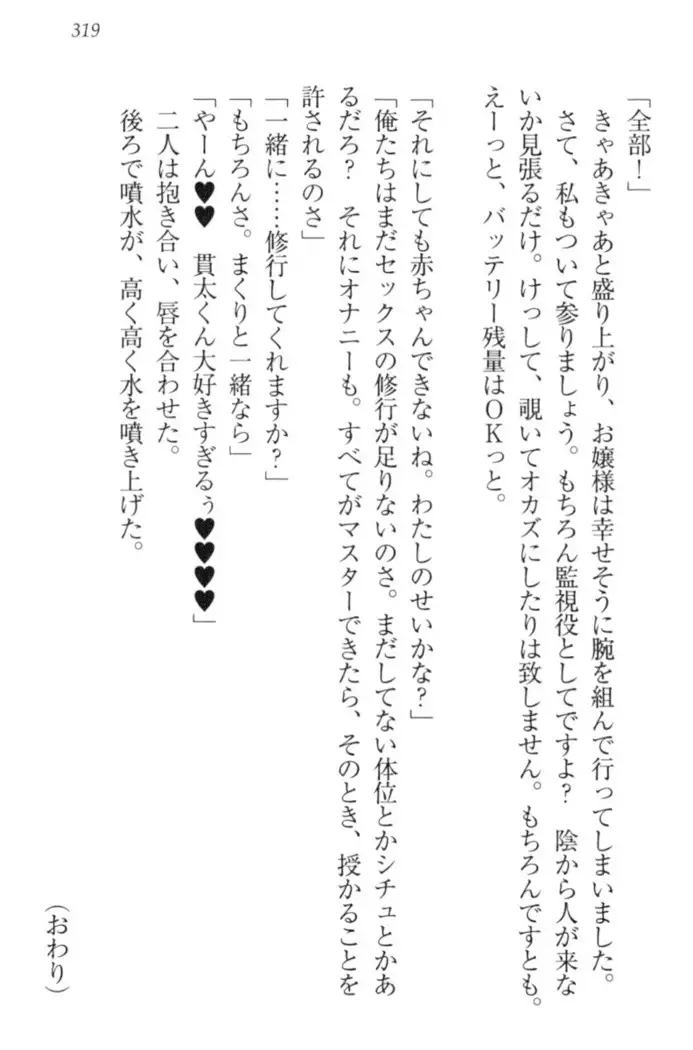 319
「全部！」
きゃあきゃあと盛り上がり、お嬢様は幸せそうに腕を組んで行ってしまいました。
さて、私もついて参りましょう。もちろん監視役としてですよ？　陰から人が来な
いか見張るだけ。けっして、覗いてオカズにしたりは致しません。もちろんですとも。
えーっと、バッテリー残量はＯＫっと。
「それにしても赤ちゃんできないね。わたしのせいかな？」
「俺たちはまだセックスの修行が足りないのさ。まだしてない体位とかシチュとかあ
るだろ？　それにオナニーも。すべてがマスターできたら、そのとき、授かることを
許されるのさ」
「一緒に……修行してくれますか？」
「もちろんさ。まくりと一緒なら」
「やーん♥♥　貫太くん大好きすぎるぅ♥♥♥♥」
二人は抱き合い、唇を合わせた。
後ろで噴水が、高く高く水を噴き上げた。
（おわり）